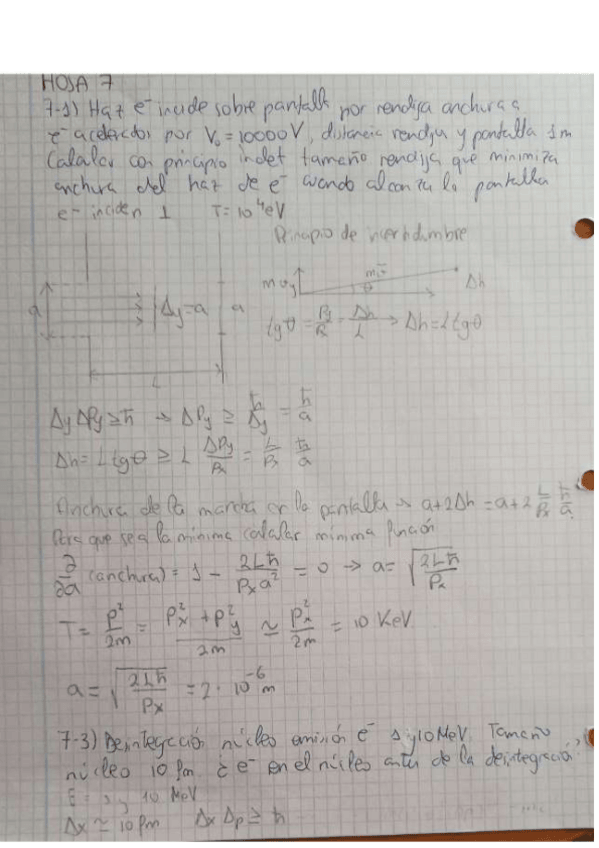 HOJA 7
7-1) Haz e⁻ incide sobre pantalla por rendija anchura a
e⁻ acelerados por V₀ = 10000V, distancia rendija y pantalla 1m
Calcular con principio indet tamaño rendija que minimiza
anchura del haz de e⁻ cuando alcanza la pantalla
e⁻ inciden ⊥ T = 10⁴eV
Principio de incertidumbre
a
Δy=a
a
L
θ
Δh
tgθ = Py/Px = Δh/L → Δh = L tgθ
Δy ΔPy ≥ ħ → ΔPy ≥ ħ/Δy = ħ/a
Δh = L tgθ ≥ L ΔPy/Px = L/Px ħ/a
Anchura de la mancha en la pantalla → a+2Δh = a+2 L/Px ħ/a
Para que sea la mínima calcular mínima función
∂/∂a (anchura) = 1 - 2Lħ/Pxa² = 0 → a = √(2Lħ/Px)
T = P²/2m = (Px² + Py²)/2m ≃ Px²/2m = 10 KeV
a = √(2Lħ/Px) = 2·10⁻⁶ m
7-3) Deintegració núcleo emisión e⁻ 1 y 10 MeV. Tamaño
núcleo 10 fm ¿ e⁻ en el núcleo antes de la deintegració?
E = 1 y 10 MeV
Δx ≃ 10 fm Δx Δp ≥ ħ